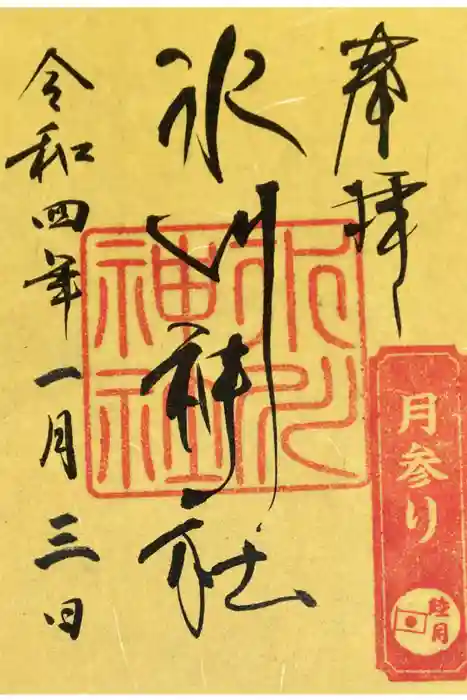 奉拝
月参り
睦月
氷川神社
氷川
神社
令和四年一月三日